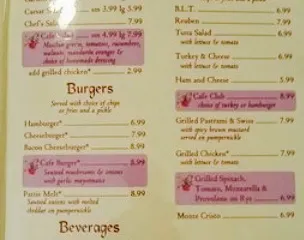 Caesar Salad sm 3.99 lg 5.99
Chef's Salad 7.99
Cafe Salad sm 4.99 lg 7.99
Mixclun greens, tomatoes, cucumbers,
walnuts, mandarin oranges &
choice of homemade dressing
add grilled chicken* 2.99
Burgers
Served with choice of chips
or fries and a pickle
Hamburger* 6.99
Cheeseburger* 7.99
Bacon Cheeseburger* 8.99
Cafe Burger* 8.99
Sauteed mushrooms & onions
with garlic mayonnaise
Pattie Melt* 7.99
Sauteed onions with melted
cheddar on pumpernickel
Beverages
B.L.T. 6.99
Reuben 7.99
Tuna Salad 6.99
with lettuce & tomato
Turkey & Cheese 6.99
with lettuce & tomato
Ham and Cheese 5.99
Cafe Club 8.99
choice of turkey or hamburger
Grilled Pastrami & Swiss 7.99
with spicy brown mustard
served on pumpernickel
Grilled Chicken* 6.99
with lettuce & tomato
Grilled Spinach,
Tomato, Mozzarella &
Provolone on Rye 6.99
Monte Cristo 6.99